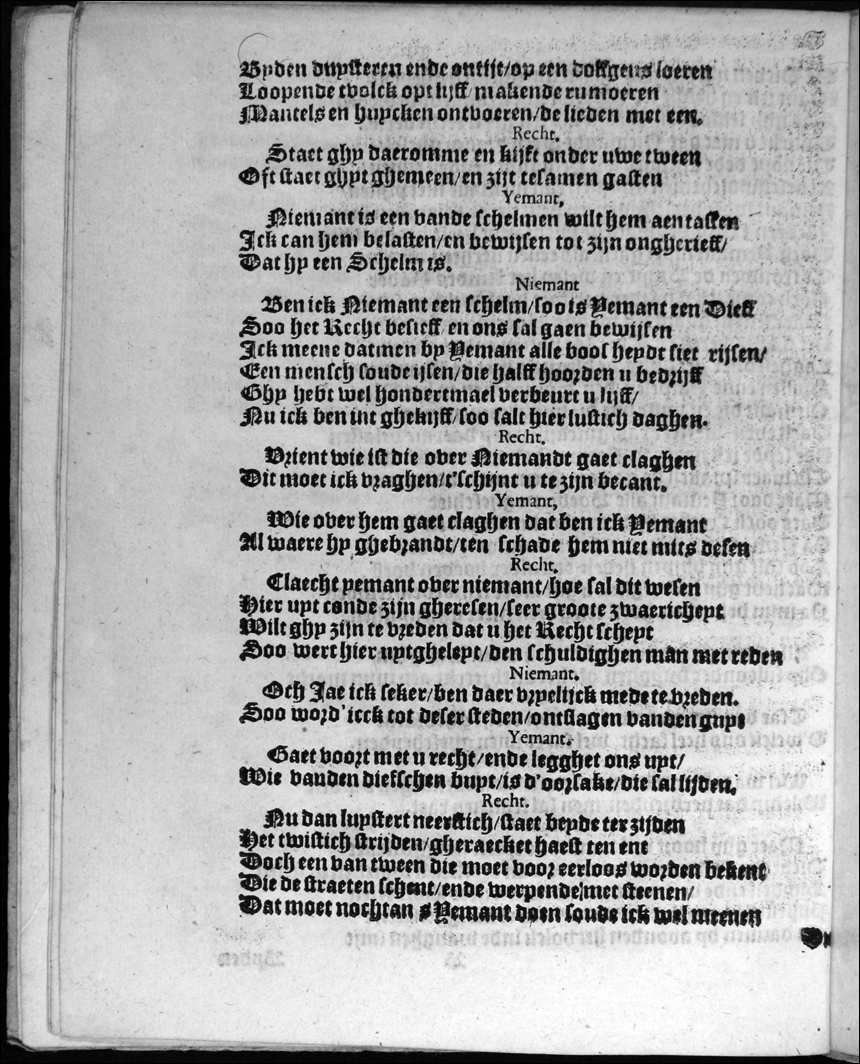 Byden duysteren ende ontijt/op een dolfgens loeren
Loopende tvolck opt lijff/makende rumoeren
Mantels en huycken ontvoeren/de lieden met een.
Recht.
Staet ghy daeromme en kijft onder uwe tween
Oft staet ghijt ghemeen/en zijt tesamen gasten
Yemant,
Niemant is een vande schelmen wilt hem aen tasten
Ick can hem belasten/en bewijsen tot zijn ongherieff/
Dat hy een Schelm is.
Niemant
Ben ick Niemant een schelm/soo is Yemant een Dieff
Soo het Recht besieff en ons sal gaen bewijsen
Ick meene datmen by Yemant alle boosheydt siet rijsen/
Een mensch soude ijsen/die halff hoorden u bedrijff
Ghy hebt wel hondertmael verbeurt u lijff/
Nu ick ben int ghekijff/soo salt hier lustich daghen.
Recht.
Vrient wie ist die over Niemandt gaet claghen
Dit moet ick vraghen/t'schijnt u te zijn becant.
Yemant,
Wie over hem gaet claghen dat ben ick Yemant
Al waere hy ghebrandt/ten schade hem niet mits desen
Recht.
Claecht yemant over niemant/hoe sal dit wesen
Hier uyt conde zijn gheresen/seer groote zwaericheyt
Wilt ghy zijn te vreden dat u het Recht scheyt
Soo wert hier uytgheleyt/den schuldighen man met reden
Niemant.
Och Jae ick seker/ben daer vryelijck mede te vreden.
Soo word'icck tot deser steden/ontslagen vanden guyt
Yemant.
Gaet voort met u recht/ende legghet ons uyt/
Wie vanden diefschen buyt/is d'oorsake/die sal lijden.
Recht.
Nu dan luystert neerstich/staet beyde ter zijden
Het twistich strijden/gheraecket haest ten ent
Doch een van tween die moet voor eerloos worden bekent
Die de straeten schent/ende werpende met steenen/
Dat moet nochtan s Yemant doen soude ick wel meenen